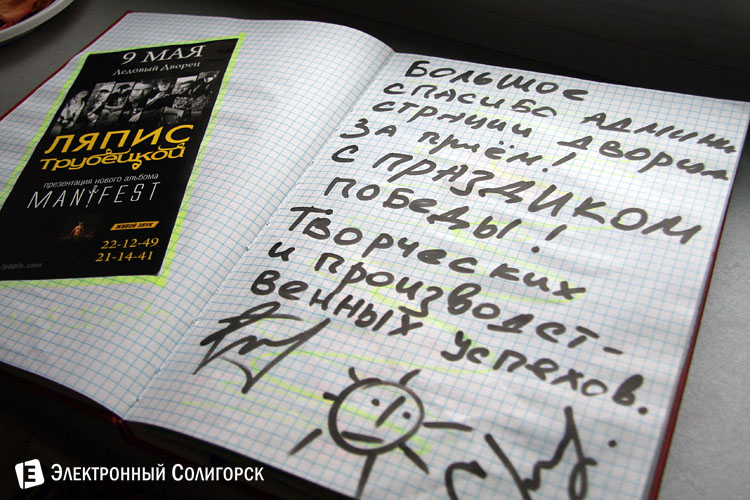 9 МАЯ
Ледовый Дворец
ЛЯПИС
ТРУБЕЦКОЙ
презентация нового альбома
MANIFEST
ЖИВОЙ ЗВУК
22-12-49
21-14-41
БОЛЬШОЕ
СПАСИБО АДМИНИ
СТРАЦИИ ДВОРЦА
ЗА ПРИЁМ!
С ПРАЗДИКОМ
ПОБЕДЫ!
ТВОРЧЕСКИХ
И ПРОИЗВОДСТ-
ВЕННЫХ УСПЕХОВ.
Е Электронный Солигорск